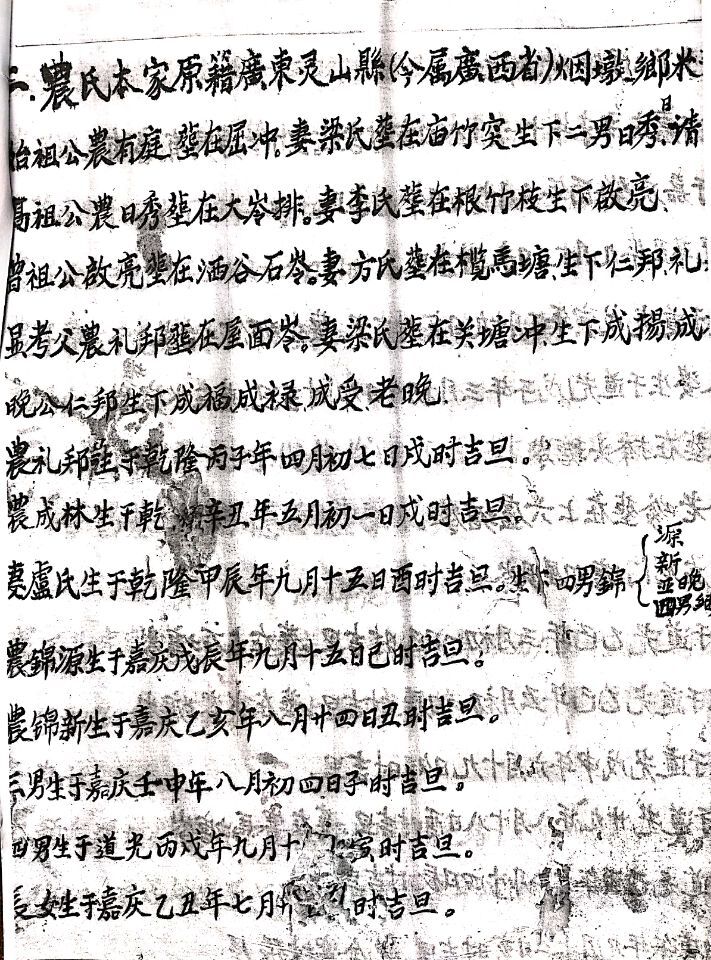 二、農氏本家原籍廣東灵山縣(今属廣西省)烟墩鄉米
始祖公農有庭塟在屈冲。妻梁氏塟在庙竹突生下二男日秀、日请
高祖公農日秀塟在大岺排。妻李氏塟在根竹枝生下啟亮、
曾祖公啟亮塟在洒谷石岺。妻方氏塟在榄馬塘、生下仁邦、礼
显考父農礼邦塟在屋面岺。妻梁氏塟在关塘冲、生下成揚、成
晚公仁邦生下成福、成禄、成受、老晚、
農礼邦 于乾隆丙子年四月初七日戍时吉旦。
農成林生于乾 辛丑年五月初一日戍时吉旦。
妻盧氏生于乾隆甲辰年九月十五日酉时吉旦。生下四男錦{源 新 亚晚 四男
農錦源生于嘉庆戊辰年九月十五日巳时吉旦。
農錦新生于嘉庆乙亥年八月廿四日丑时吉旦。
三男生于嘉庆壬申年八月初四日子时吉旦。
四男生于道光丙戍年九月十 寅时吉旦。
長女生于嘉庆乙丑年七月 时吉旦。